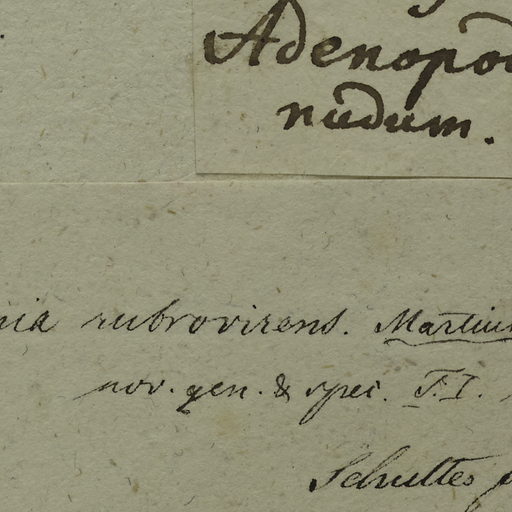 Adenopod
nudum.
nia rubrovirens. Martius
nov. gen. & spec. T. I.
Schultes